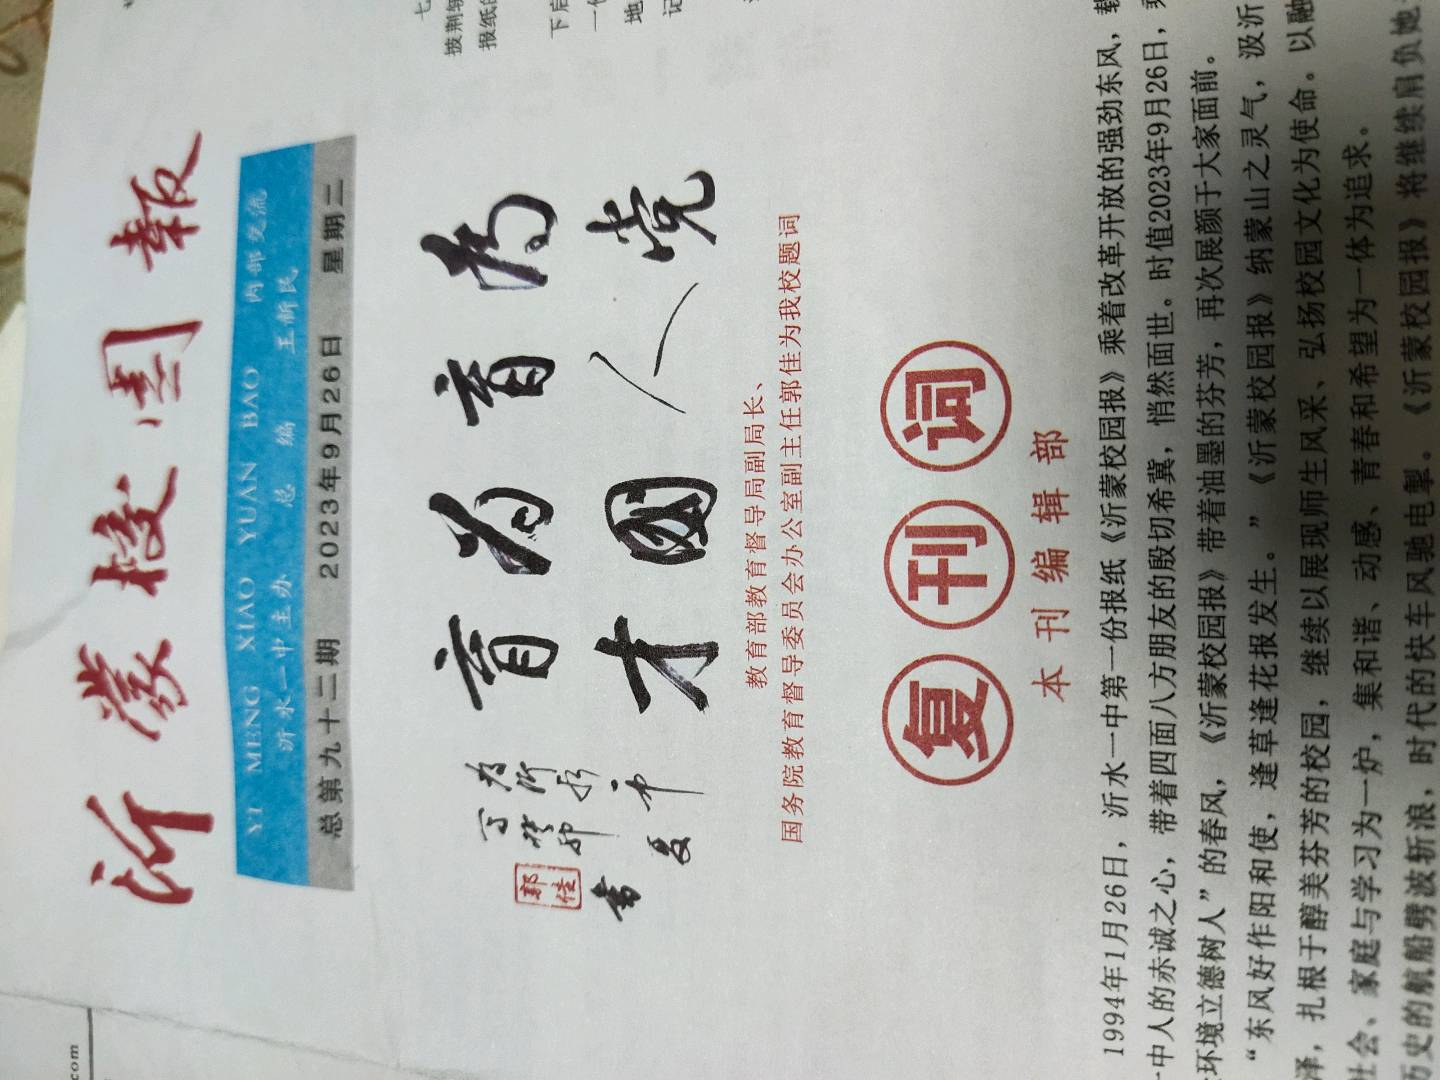 沂蒙校园报
YI MENG XIAO YUAN BAO 内部交流
沂水一中主办 总 编 王新民
总第九十二期 2023年9月26日 星期二
为党
育人
为国
育才
郭佳
教育部教育督导局副局长、
国务院教育督导委员会办公室副主任郭佳为我校题词
复刊词
本刊编辑部
1994年1月26日，沂水一中第一份报纸《沂蒙校园报》乘着改革开放的强劲东风，载
中人的赤诚之心，带着四面八方朋友的殷切希冀，悄然面世。时值2023年9月26日，
环境立德树人”的春风，《沂蒙校园报》带着油墨的芬芳，再次展颜于大家面前。
“东风好作阳和使，逢草逢花报发生。”《沂蒙校园报》纳蒙山之灵气，汲沂
泽，扎根于醇美芬芳的校园，继续以展现师生风采、弘扬校园文化为使命。以融
社会、家庭与学习为一炉，集和谐、动感、青春和希望为一体为追求。
历史的航船劈波斩浪，时代的快车风驰电掣。《沂蒙校园报》将继续肩负她
披荆
报纸
下
一
地
记
com